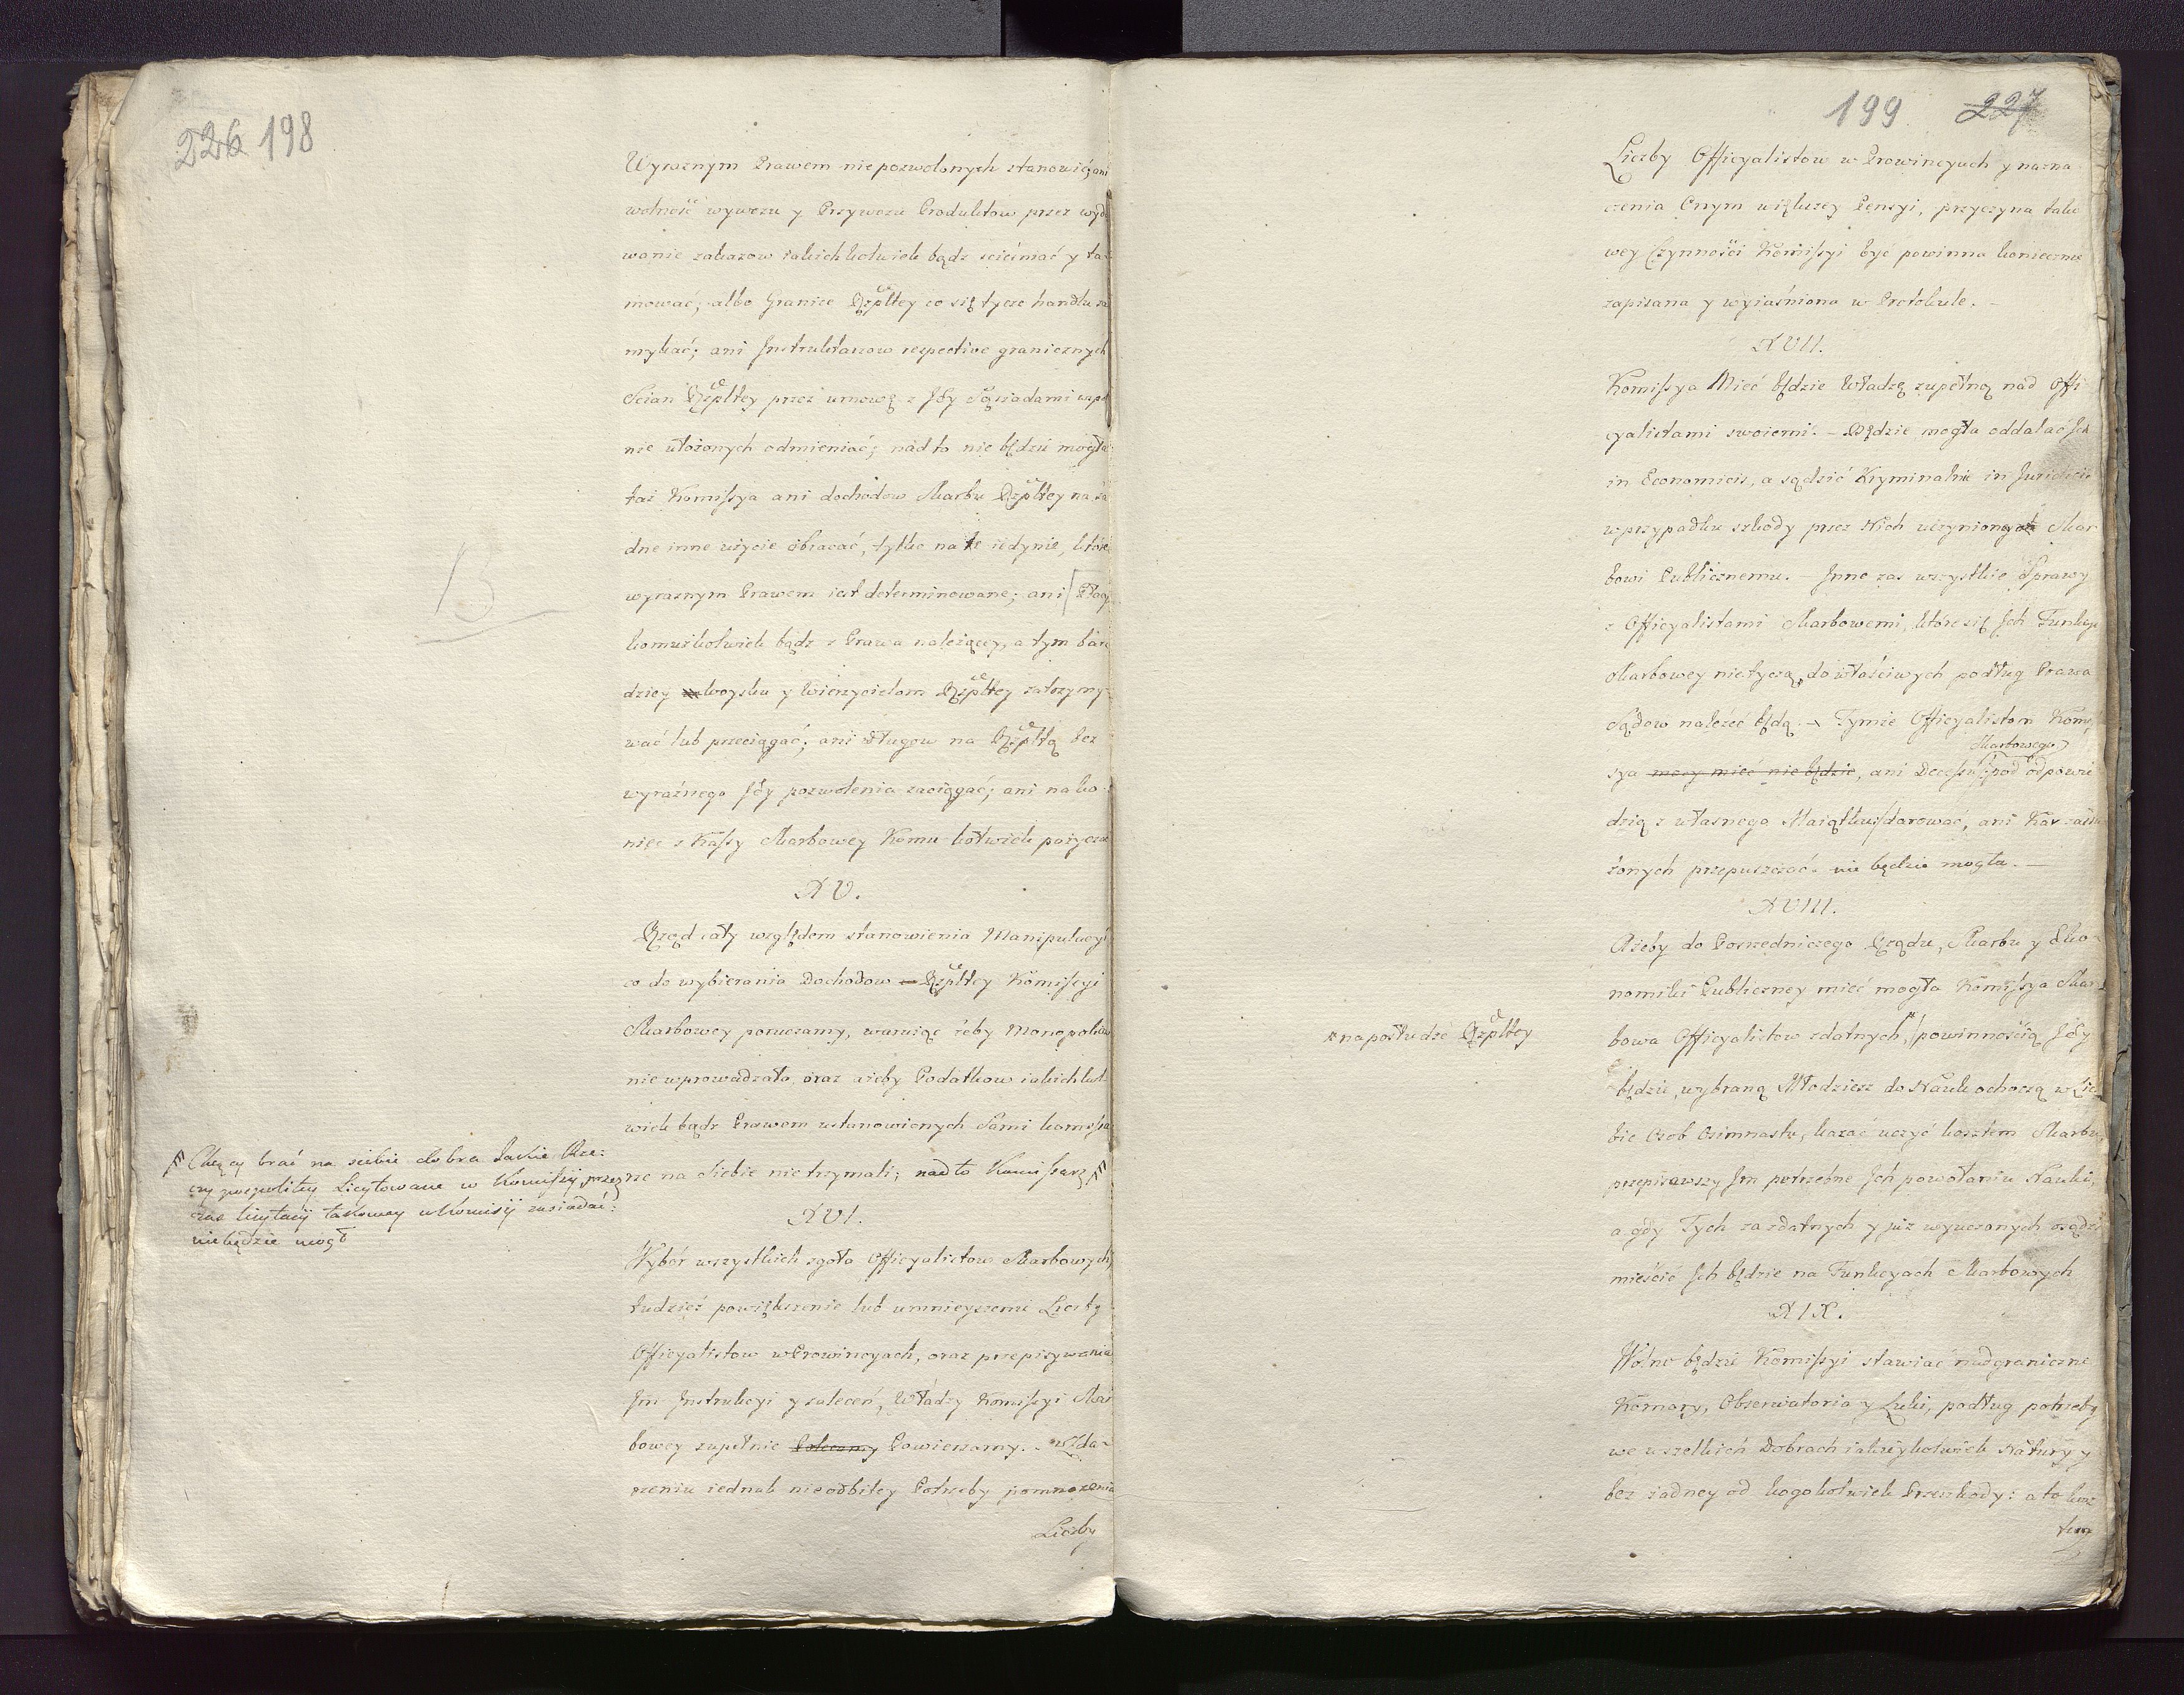 226 198
Wyraznym Prawem niepozwolonych stanowić, ani
wolność wywozu y Przywozu Produktow przez wyda
wanie zakazow iakichkolwiek bądz scieśniać y ta=
mować; albo Granice Rzpltey co się tycze handlu za
mykać; ani Instruktarzow respective granicznych
Scian Rzpltey przez umowę z Jch Sąsiadami wspol
nie ułożonych odmieniać; nadto nie będzie mogła
taż Kommissya ani dochodow Skarbu Rzpltey na ża
dne inne użycie obracać, tylko na te iedynie, które
wyraznym Prawem iest determinowane; ani Płacy
komużkolwiek bądz z Prawa należącey, a tym bar
dziey Woysku y Wierzycielom Rzpltey zatrzymy=
wać lub przeciągać; ani długow na Rzpltą bez
wyraźnego pozwolenia zaciągać; ani nako=
niec z Kassy Skarbowey Komu kolwiek pożyczać
XV.
Rząd cały względem stanowienia Manipulacyi
co do wybierania Dochodow Rzpltey Kommissyi
Skarbowey poruczamy, waruiąc żeby Monopolium
nie wprowadzała, oraz ażeby Podatkow iakichkol
wiek bądz Prawem ustanowionych Sami kommissa
rze na Siebie nie trzymali; nadto Kommissarz
Chcący brać na siebie dobra Rze=
czypospolitey Licytowane w Kommissyi, przez
czas licytacyi takowey w Kommisyi zasiadać
niebędzie mogł
XVI.
Wybór wszystkich zgoła Officyalistow Skarbowych,
tudzież powiększenie lub umnieyszenie Liczby
Officyalistow w Prowincyach, oraz przepisywania
Im Instrukcyi y zaleceń, Władzy Kommissyi Skar
bowey zupełnie Polecamy Powierzamy. W zda=
rzeniu iednak nieodbitey Potrzeby pomnożenia
Liczby
199 227
Liczby Officyalistow w Prowincyach y nazna
czenia Onym większey Pensyi, przyczyna tako
wey Czynności Kommissyi być powinna koniecznie
zapisana y wyiaśniona w Protokule.
XVII.
Kommissya Mieć będzie Władzę zupełną nad Offi
cyalistami swoiemi. – Będzie mogła oddalać Ich
in Economicis, a sądzić Kryminalnie in Juridicis
w przypadku szkody przez Nich uczynionych Skar
bowi Publicznemu. – Inne zas wszystkie Sprawy
z Officyalistami Skarbowemi, które się Ich Funkcyi
Skarbowey nietyczą, do właściwych podług Prawa
Sądow należeć będą. – Tymże Officyalistom Kommis
Skarbowego
sya mocy mieć nie będzie, ani Decessu, pod odpowie
dzią z własnego Maiątku darować, ani Kar zasłu
żonych przepuszczać nie będzie mogła. –
XVIII.
Ażeby do Posredniczego Rządu, Skarbu y Eko=
nomiki Publiczney mieć mogła Kommissya Skar
na posłudze Rzpltey
bowa Officyalistow zdatnych, powinnością
będzie, wybraną Młodzież do Nauk ochoczą w Licz
bie Osob Osimnastu, kazać uczyć kosztem Skarbu,
przepisawszy Im potrzebne Ich powołaniu Nauki,
a gdy Tych za zdatnych y już wyuczonych osądzi
mieścić Ich będzie na Funkcyach Skarbowych
XIX.
Wolno będzie Kommissyi stawiać nadgraniczne
Komory, Obserwatoria y podług potrzeby
we wszelkich Dobrach iakieykolwiek Natury y
bez żadney od kogokolwiek Przeszkody: a to kosz
tem